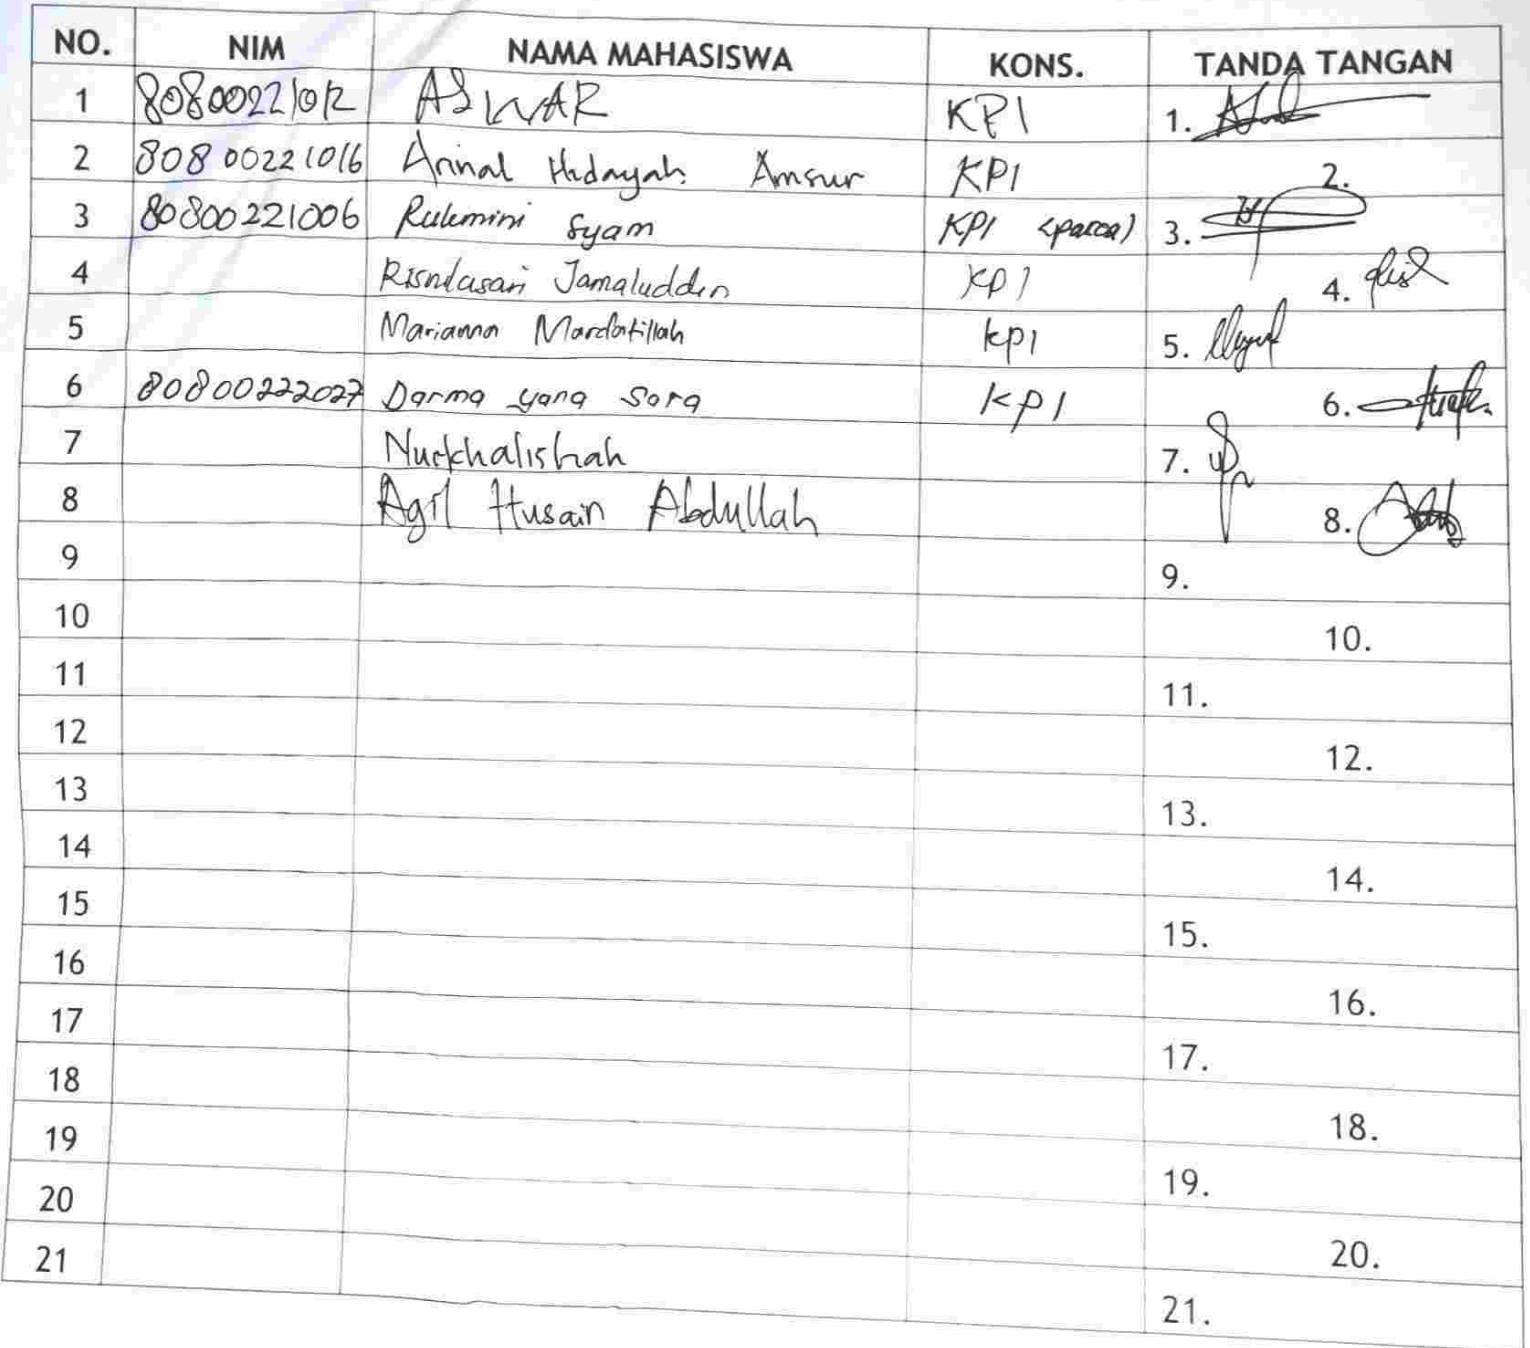 NO. NIM NAMA MAHASISWA KONS. TANDA TANGAN
1 80800221012 ASWAR KPI 1.
2 80800221016 Arinal Hidayah Amsur KPI 2.
3 80800221006 Rukmini Syam KPI (pasca) 3.
4 Risndasari Jamaluddin KPI 4.
5 Marianna Mardatillah kpi 5.
6 80800222027 Darma yana Sora KPI 6.
7 Nurkhalishah 7.
8 Agil Husain Abdullah 8.
9 9.
10 10.
11 11.
12 12.
13 13.
14 14.
15 15.
16 16.
17 17.
18 18.
19 19.
20 20.
21 21.